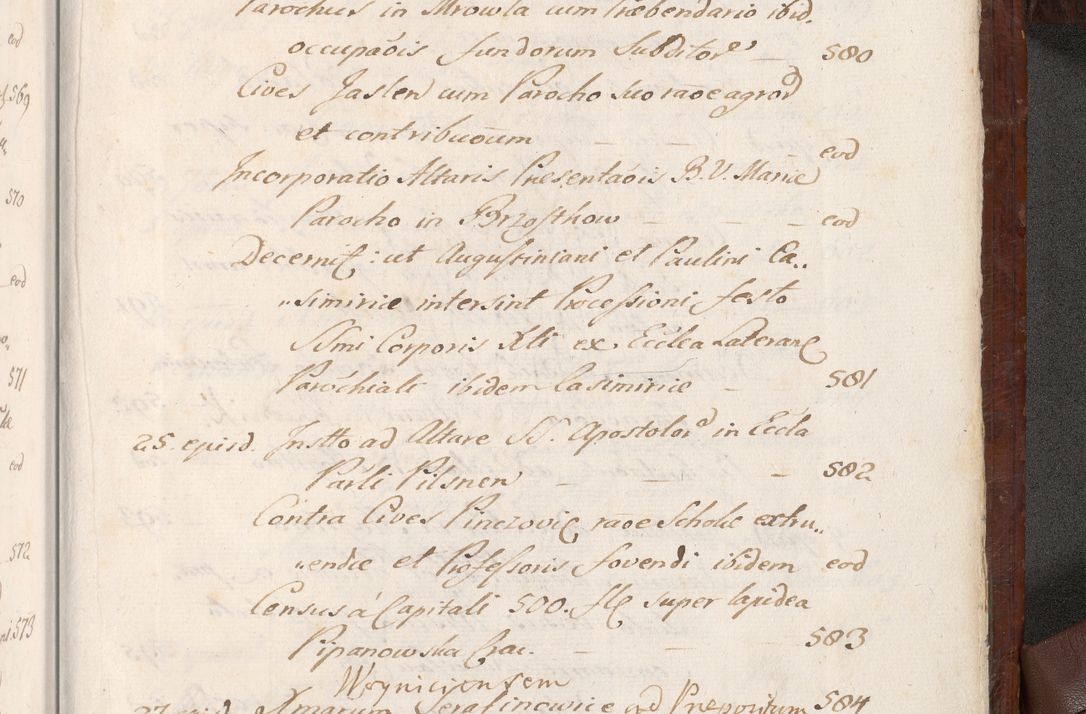 Parochus in Mrowla cum Præbendario ibid.
occupaōis fundorum Subditor. — 580
Cives Jaslen cum Parocho suo raōe agror
et contribuōum — — eod
Incorporatio Altaris Præsentaōis B. V. Mariæ
Parocho in Brzostkow — — — eod
Decernit: ut Augustiniani et Paulini Ca„
„simiriæ intersint Processioni festo
SSmi Corporis Xti ex Ecclea Lateran
Parochiali ibidem Casimiriæ — 581
25. ejusd. Instto ad Altare SS. Apostolor in Eccla
Parli Pilsnen — — — 582
Contra Cives Pinczovie raōe Scholæ extru„
„endæ et Professoris fovendi ibidem eod
Census á Capitali 500. fl super lapidea
Pipanowska Crac. — — 583
Woyniciensem
27. ejusd. Amarum Serafinowicz ad Præpositum 584
eod
569
570
eod
571
eod
572
573